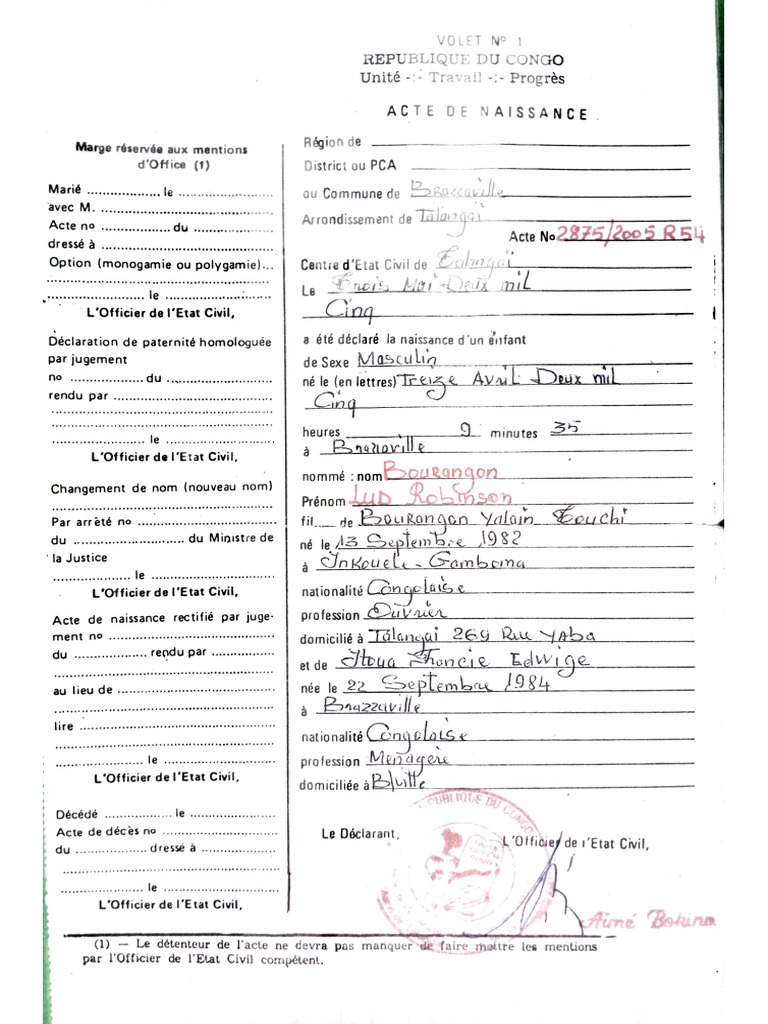 VOLET N° 1
REPUBLIQUE DU CONGO
Unité -:- Travail -:- Progrès
ACTE DE NAISSANCE
Marge réservée aux mentions
d'Office (1)
Marié ................... le .........................
avec M. .............................................
Acte no ................... du .....................
dressé à ............................................
Option (monogamie ou polygamie)...
..........................................................
........................... le ..........................
L'Officier de l'Etat Civil,
Déclaration de paternité homologuée
par jugement
no ................... du ............................
rendu par ..........................................
..........................................................
..........................................................
........................ le .............................
L'Officier de l'Etat Civil,
Changement de nom (nouveau nom)
..........................................................
Par arrêté no ....................................
du ............................ du Ministre de
la Justice
.................... le .................................
L'Officier de l'Etat Civil,
Acte de naissance rectifié par juge-
ment no ............................................
du ................... rendu par ................
..........................................................
au lieu de ..........................................
..........................................................
lire ....................................................
..........................................................
........................ le .............................
L'Officier de l'Etat Civil,
Décédé .................. le .....................
Acte de décès no .............................
du ................... dressé à ...................
..........................................................
........................ le .............................
L'Officier de l'Etat Civil,
Région de
District ou PCA
ou Commune de Brazzaville
Arrondissement de Talangaï
Acte No 2875/2005 R54
Centre d'Etat Civil de Talangaï
Le Trois Mai Deux mil
Cinq
a été déclaré la naissance d'un enfant
de Sexe Masculin
né le (en lettres) Treize Avril Deux mil
Cinq
heures 9 minutes 35
à Brazzaville
nommé : nom Bourangon
Prénom Lud Robinson
fil de Bourangon Yalain Touchi
né le 13 Septembre 1982
à Inkouele-Gamboma
nationalité Congolaise
profession Ouvrier
domicilié à Talangaï 269 Rue Yaba
et de Itoua Francie Edwige
née le 22 Septembre 1984
à Brazzaville
nationalité Congolaise
profession Ménagère
domiciliée à B/ville
Le Déclarant,
L'Officier de l'Etat Civil,
REPUBLIQUE DU CONGO
Aimé Bokina
(1) — Le détenteur de l'acte ne devra pas manquer de faire mettre les mentions
par l'Officier de l'Etat Civil compétent.